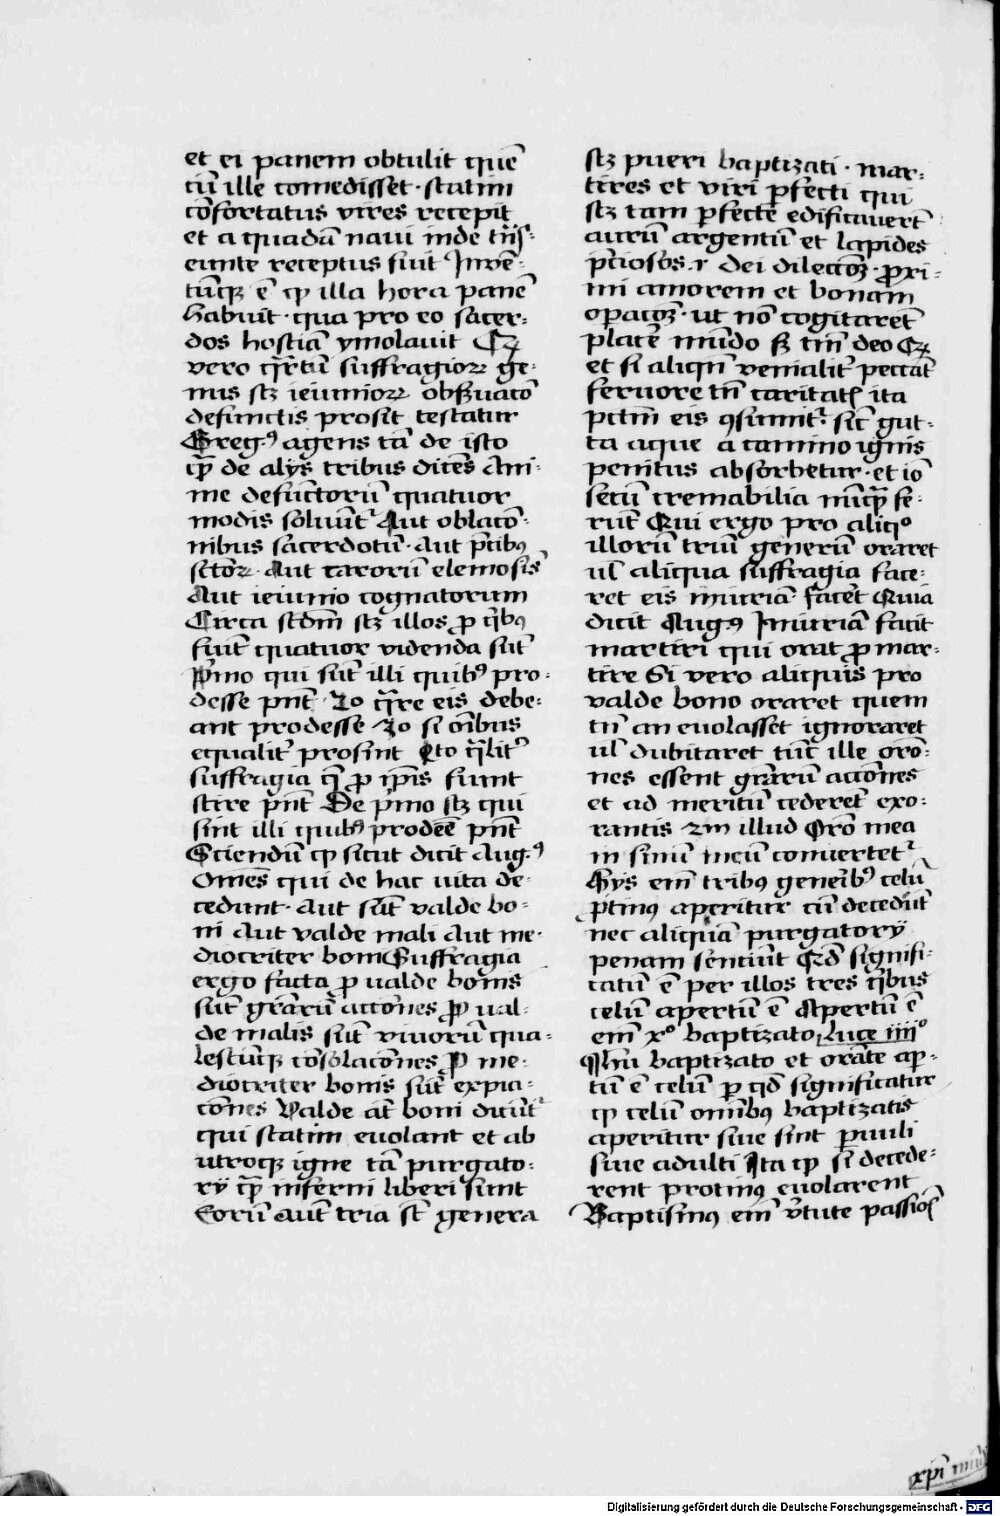 et ei panem obtulit quē
cū ille comedisset · statim
cōfortatus vires recepit
et a quadā naui inde trās-
eunte receptus fuit Inuē-
tūqꝫ ē ꝙ illa hora panē
habuit · qua pro eo sacer-
dos hostiā ymolauit Cꝫ
vero q̄rtū suffragioꝝ ge-
nus sꝫ ieiunioꝝ obẜuatō
defunctis prosit testatur
Greg⁹ agens tā de isto
qͣꝫ de alijs tribus dicēs Ani-
me defūctorū quatuor
modis soluūt͛ Aut oblatō-
nibus sacerdotū · Aut p̄cibꝫ
sctōꝝ · Aut carorū elemosīs
Aut ieiunio cognatorum
Circa scdm̄ sꝫ illos ꝓ q̄ibꝫ
fiūt quatuor videnda sūt
P̄mo qui sūt illi quibꝫ pro-
desse pn̄t · 2o q̄re eis debe-
ant prodesse 3o si oībus
equalit͛ prosint 4to q̄lit͛
suffragia q̄ ꝓ ip̄is fiunt
scire pn̄t De p̄mo sꝫ qui
sint illi quibꝫ prodeē pn̄t
Sciendū ꝙ sicut dicit Aug⁹
Om̄es qui de hac uita de-
cedunt · aut sūt valde bo-
ni Aut valde mali Aut me-
diocriter boni Suffragia
ergo facta ꝓ ualde bonis
sūt gr̄arū accōnes Pro ual-
de malis sūt viuorū qua-
lescūqꝫ cōsolacōnes Pro me-
diocriter bonis sūt expia-
cōnes Valde āt boni dicūt͛
qui statim euolant et ab
utroqꝫ igne tā purgato-
rij qͣꝫ inferni liberi sunt
Eorū aūt tria sūt genera
sꝫ pueri baptizati · mar-
tires et viri ꝑfecti qui
sꝫ tam ꝑfecte edificauerūt
aurū argentū et lapides
p̄ciosos · i · dei dilectōꝫ · proxi-
mi amorem et bonam
oꝑacōꝫ · ut nō cogitarēt
placē mūdo sꝫ tm̄ deo Cꝫ
et si aliqn̄ venialit͛ peccāt
feruore tn̄ caritatꝭ ita
pctm̄ eis ꝯsumit͛ · sic̄ gut-
ta aque a camino ignis
penitus absorbetur · et iō
secū cremabilia nūqͣꝫ fe-
rūt Qui ergo pro aliqͦ
illorū triū generū oraret
ul̄ aliqua suffragia face-
ret eis iniuriā facēt Quia
dicit Aug⁹ Iniuriam facit
martiri qui orat ꝓ mar-
tire Si vero aliquis pro
valde bono oraret quem
tn̄ an euolasset ignoraret
ul̄ dubitaret tūc ille orō-
nes essent gr̄arū accōnes
et ad meritū cederēt exo-
rantis iuxta illud Orō mea
in sinū meū conuertet͛
Hijs em̄ tribꝫ generibꝫ celū
ꝓtinꝰ aperitur cū decedūt
nec aliquā purgatorij
penam sentiūt Qd̄ signifi-
catū ē per illos tres q̄ibus
celum apertū ē Apertū ē
em̄ xꝑo baptizato Luce iiiͦ
Ihū baptizato et orāte aꝑ-
tū ē celū ꝑ qd̄ significatur
ꝙ celū omībꝫ baptizatis
aperitur siue sint ꝑuuli
siue adulti Ita ꝙ si decede-
rent protinꝰ euolarent
Baptismꝰ em̄ v̄tute passioīs
xp̄i
Digitalisierung gefördert durch die Deutsche Forschungsgemeinschaft - DFG